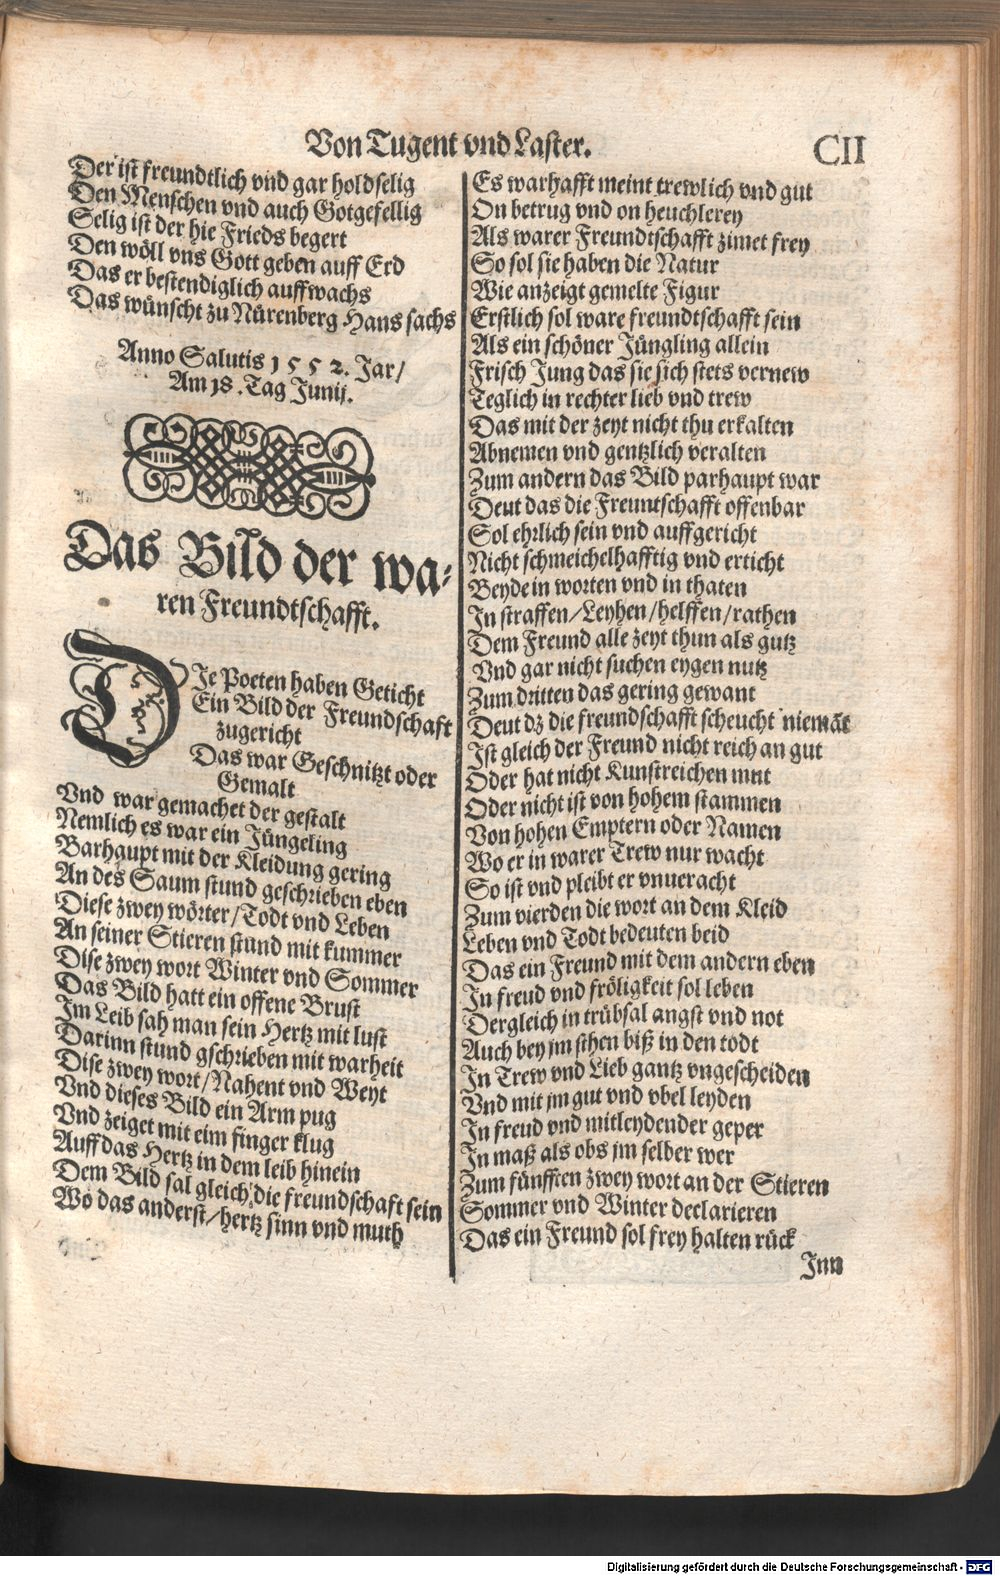 Von Tugent vnd Laster.
CII
Der ist freundtlich vnd gar holdselig
Den Menschen vnd auch Gotgefellig
Selig ist der hie Frieds begert
Den wöll vns Gott geben auff Erd
Das er bestendiglich auffwachs
Das wünscht zu Nürenberg Hans sachs
Anno Salutis 1552. Jar/
Am 18. Tag Junij.
Das Bild der wa-
ren Freundtschafft.
DJe Poeten haben Geticht
Ein Bild der Freundschaft
zugericht
Das war Geschnitzt oder
Gemalt
Vnd war gemachet der gestalt
Nemlich es war ein Jüngeling
Barhaupt mit der Kleidung gering
An des Saum stund geschrieben eben
Diese zwey wörter/Todt vnd Leben
An seiner Stieren stund mit kummer
Dise zwey wort Winter vnd Sommer
Das Bild hatt ein offene Brust
Im Leib sah man sein Hertz mit lust
Darinn stund gschrieben mit warheit
Dise zwey wort/Nahent vnd Weyt
Vnd dieses Bild ein Arm pug
Vnd zeiget mit eim finger klug
Auff das Hertz in dem leib hinein
Dem Bild sal gleich die freundschaft sein
Wo das anderst/hertz sinn vnd muth
Es warhafft meint trewlich vnd gut
On betrug vnd on heuchlerey
Als warer Freundtschafft zimet frey
So sol sie haben die Natur
Wie anzeigt gemelte Figur
Erstlich sol ware freundtschafft sein
Als ein schöner Jüngling allein
Frisch Jung das sie sich stets vernew
Teglich in rechter lieb vnd trew
Das mit der zeyt nicht thu erkalten
Abnemen vnd gentzlich veralten
Zum andern das Bild parhaupt war
Deut das die Freuntschafft offenbar
Sol ehrlich sein vnd auffgericht
Nicht schmeichelhafftig vnd erticht
Beyde in worten vnd in thaten
In straffen/Leyhen/helffen/rathen
Dem Freund alle zeyt thun als gutz
Vnd gar nicht suchen eygen nutz
Zum dritten das gering gewant
Deut dz die freundschafft scheucht niemāt
Ist gleich der Freund nicht reich an gut
Oder hat nicht Kunstreichen mut
Oder nicht ist von hohem stammen
Von hohen Emptern oder Namen
Wo er in warer Trew nur wacht
So ist vnd pleibt er vnueracht
Zum vierden die wort an dem Kleid
Leben vnd Todt bedeuten beid
Das ein Freund mit dem andern eben
In freud vnd fröligkeit sol leben
Dergleich in trübsal angst vnd not
Auch bey jm sthen biß in den todt
In Trew vnd Lieb gantz vngescheiden
Vnd mit jm gut vnd vbel leyden
In freud vnd mitleydender geper
In maß als obs jm selber wer
Zum fünfften zwey wort an der Stieren
Sommer vnd Winter declarieren
Das ein Freund sol frey halten rück
Inn
Digitalisierung gefördert durch die Deutsche Forschungsgemeinschaft - DFG